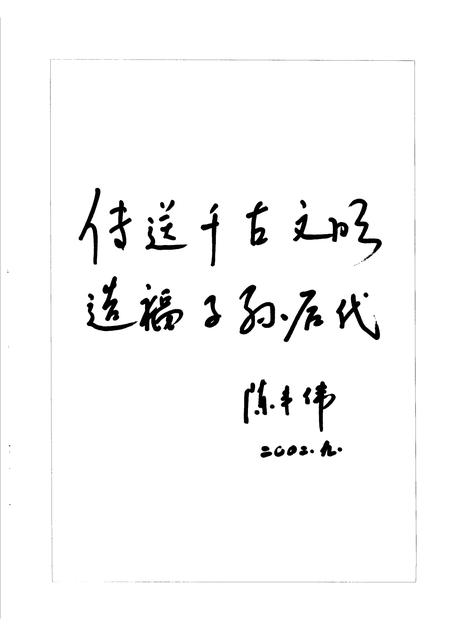 传送千古文明
造福子孙后代
陈丰伟
2002.九.